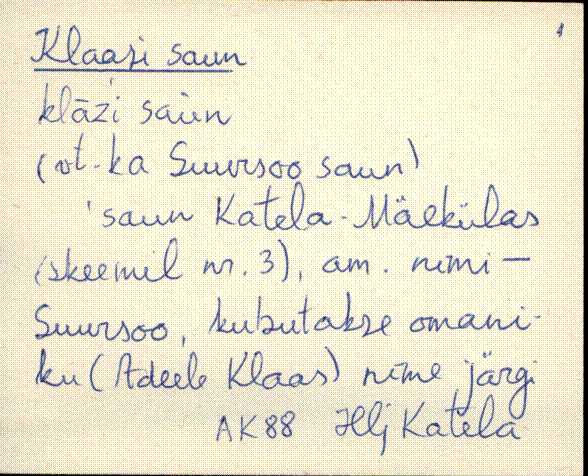 Klaasi saun
klāzi saùn
(vt. ka Suursoo saun)
'saun Katela-Mäekülas
(skeemil nr. 3), am. nimi –
Suursoo, kutsutakse omani-
ku (Adeele Klaas) nime järgi
AK88 Hlj Katela